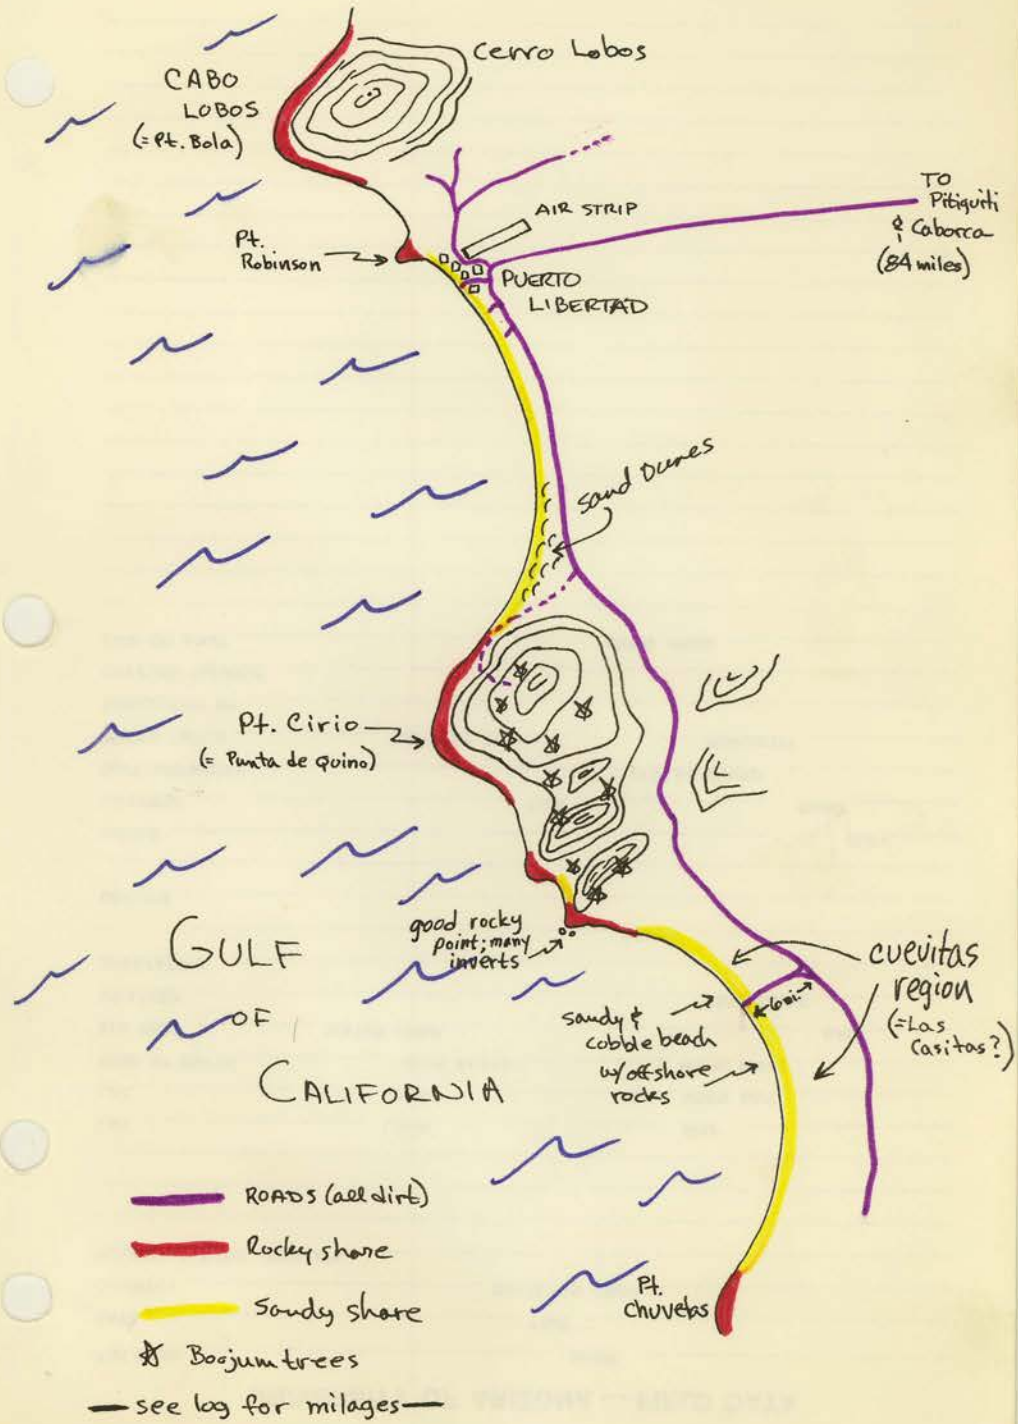 Cerro Lobos
CABO
LOBOS
(=Pt. Bola)
TO
Pitiquiti
& Caborca
(84 miles)
AIR STRIP
Pt.
Robinson
PUERTO
LIBERTAD
Sand Dunes
Pt. Cirio
(= Punta de Quino)
good rocky
point; many
inverts
GULF
OF
CALIFORNIA
cuevitas
region
(=Las
Casitas?)
sandy &
cobble beach
w/offshore
rocks
Pt.
Chuvetas
ROADS (all dirt)
Rocky shore
Sandy shore
Boojum trees
— see log for milages —